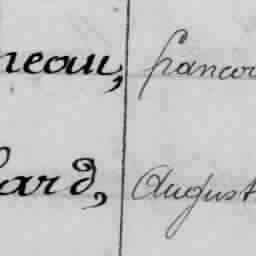 neau, francoi
lard, August